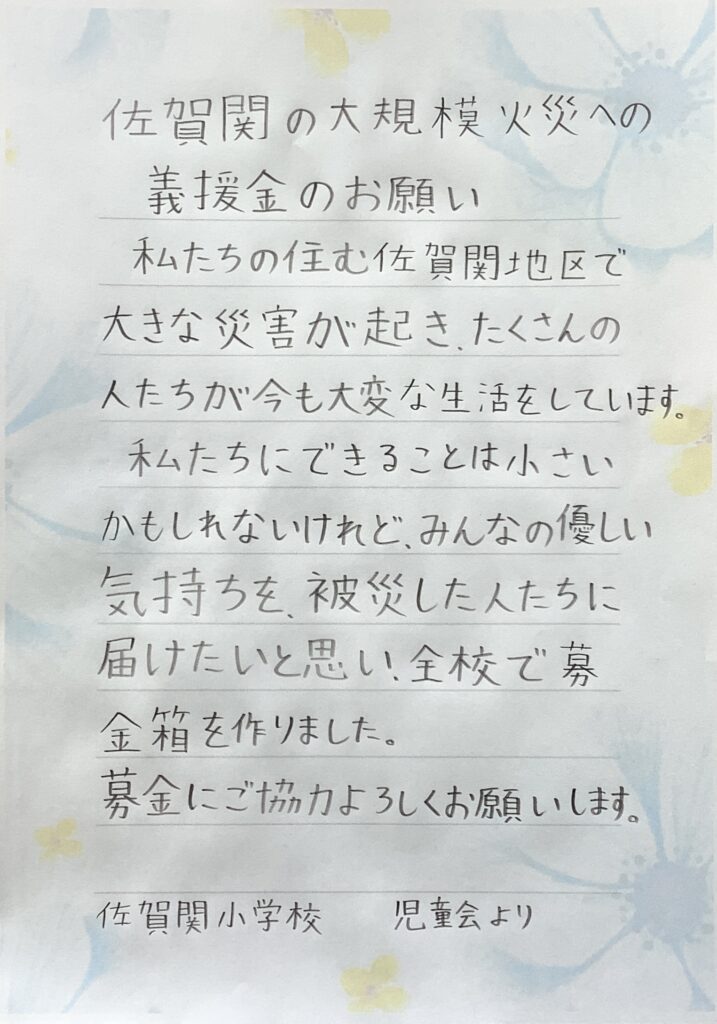 佐賀関の大規模火災への
義援金のお願い
私たちの住む佐賀関地区で
大きな災害が起き、たくさんの
人たちが今も大変な生活をしています。
私たちにできることは小さい
かもしれないけれど、みんなの優しい
気持ちを、被災した人たちに
届けたいと思い、全校で募
金箱を作りました。
募金にご協力よろしくお願いします。
佐賀関小学校　児童会より